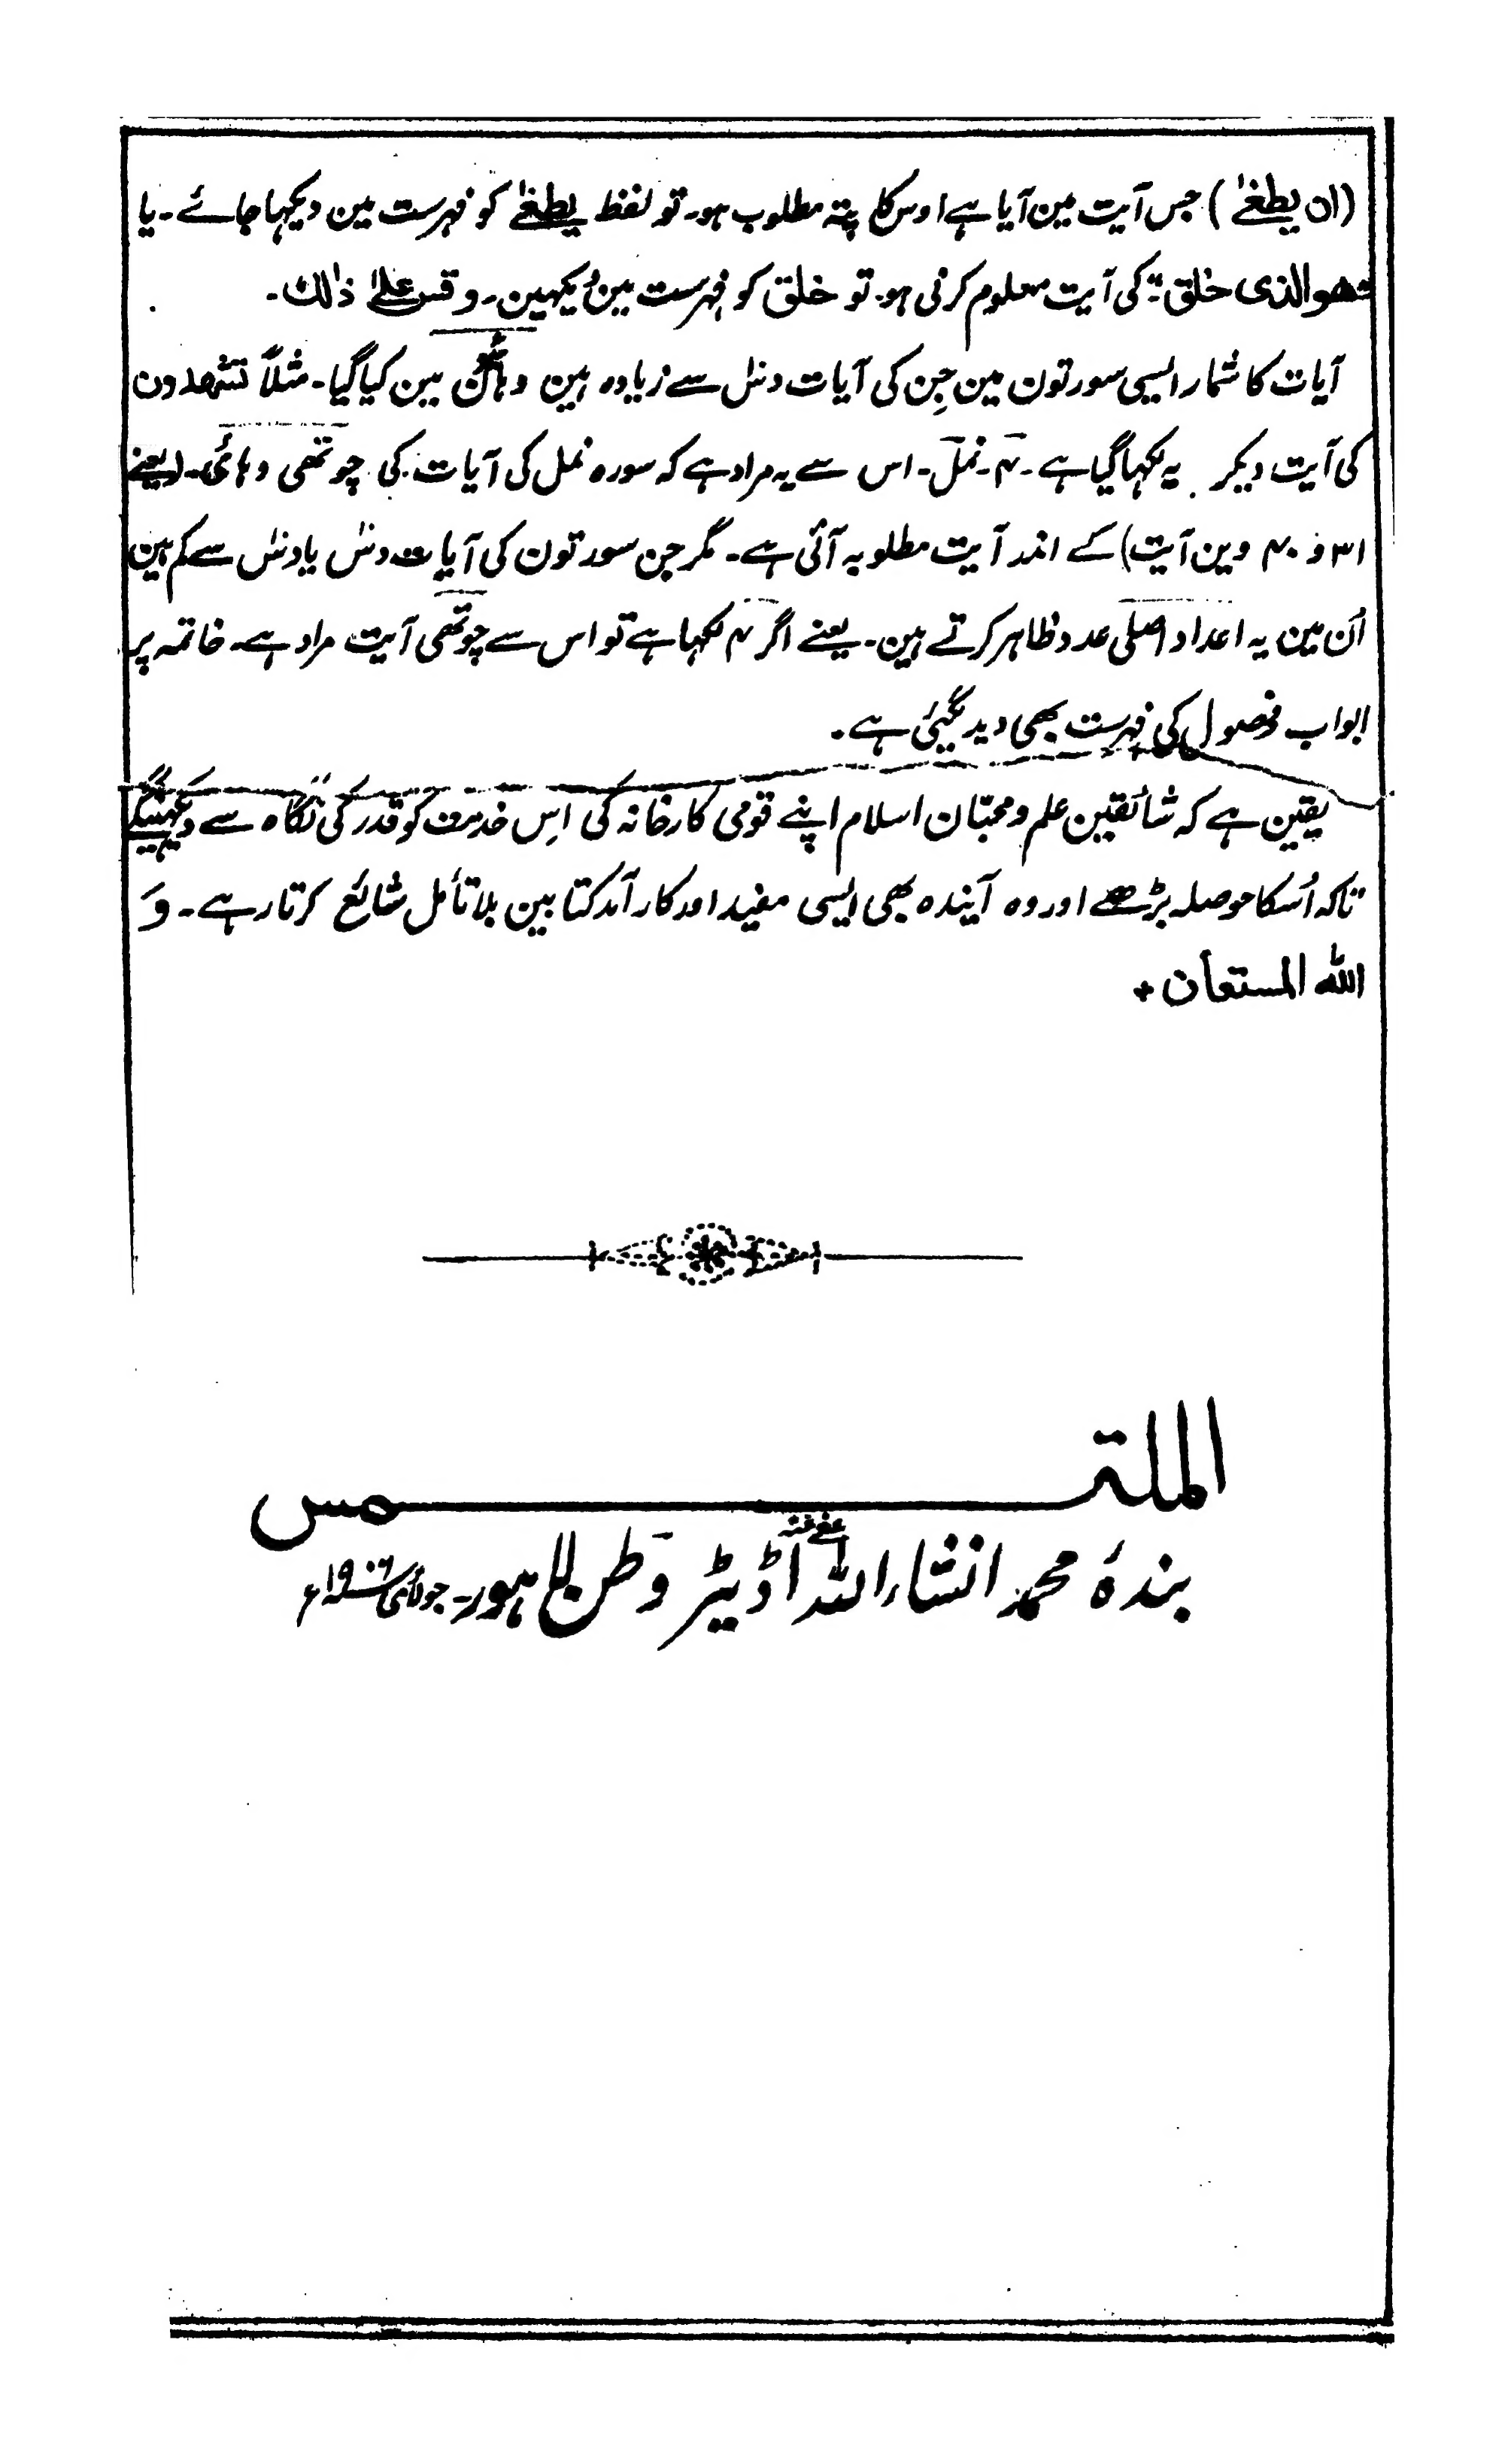 (ان یطغیٰ) جس آیت مین آیا ہے اوس کا پتہ مطلوب ہو۔ تو لفظ یطغیٰ کو فہرست مین دیکہا جائے۔ یا
ھوالذی خلق کی آیت معلوم کرنی ہو۔ تو خلق کو فہرست مین دیکہین۔ وقس علیٰ ذالک۔
آیات کا شمار ایسی سورتون مین جن کی آیات دس سے زیادہ ہین دہائیون مین کیا گیا۔ مثلاً تشھدون
کی آیت دیکر یہ لکہا گیا ہے۔ ۴۔ نمل۔ اس سے یہ مراد ہے کہ سورہ نمل کی آیات کی چوتھی دہائی۔ (یعنے
۳۱ و ۴۰ وین آیت) کے اندر آیت مطلوبہ آئی ہے۔ مگر جن سورتون کی آیات دس یا دس سے کم ہین
اُن مین یہ اعداد اصلی عدد ظاہر کرتے ہین۔ یعنے اگر ۴ لکہا ہے تو اس سے چوتھی آیت مراد ہے۔ خاتمہ پر
ابواب و فصول کی فہرست بھی دیدیگئی ہے۔
یقین ہے کہ شائقین علم و محبّان اسلام اپنے قومی کارخانہ کی اِس خدمت کو قدر کی نگاہ سے دیکہینگے
تاکہ اُسکا حوصلہ بڑھے اور وہ آیندہ بھی ایسی مفید اور کارآمد کتابین بلاتأمل شائع کرتا رہے۔ وَ
اللہ المستعان +
الملتمس
بندۂ محمد انشاءاللہ عفی عنہ اڈیٹر وطن لاہور۔ جولائی سنہ ۱۹۰۶ء